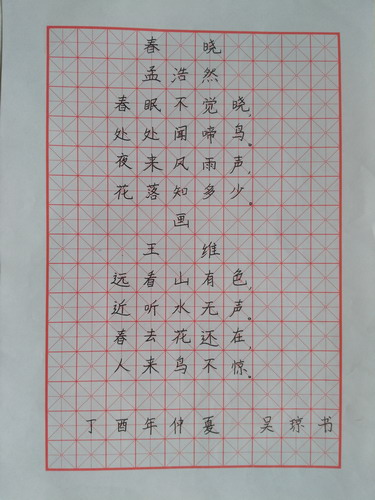 春 晓
孟浩然
春眠不觉晓,
处处闻啼鸟。
夜来风雨声,
花落知多少。
画
王 维
远看山有色,
近听水无声。
春去花还在,
人来鸟不惊。
丁酉年仲夏 吴琼书